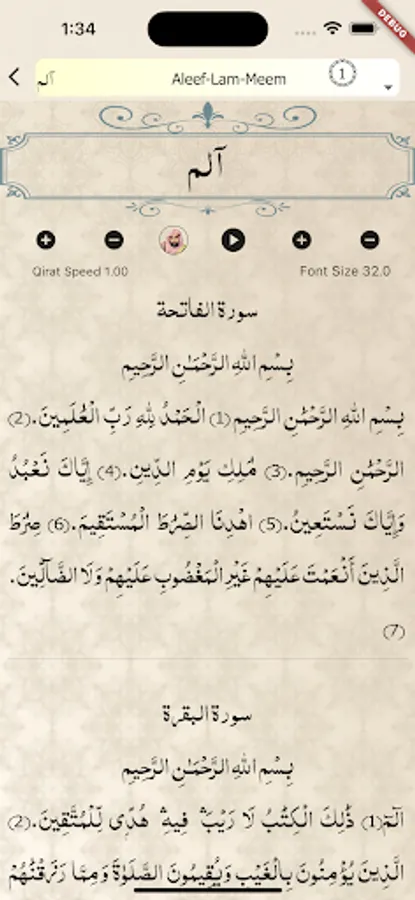 1:34
DEBUG
آلم Aleef-Lam-Meem 1
آلم
Qirat Speed 1.00 Font Size 32.0
سورة الفاتحة
بِسْمِ اللهِ الرَّحْمَـٰنِ الرَّحِيمِ
بِسْمِ اللهِ الرَّحْمَٰنِ الرَّحِيمِ(1) الْحَمْدُ لِلَّهِ رَبِّ الْعَٰلَمِينَ.(2)
الرَّحْمَٰنِ الرَّحِيمِ.(3) مَٰلِكِ يَوْمِ الدِّينِ.(4) إِيَّاكَ نَعْبُدُ
وَإِيَّاكَ نَسْتَعِينُ.(5) اهْدِنَا الصِّرَٰطَ الْمُسْتَقِيمَ.(6) صِرَٰطَ
الَّذِينَ أَنْعَمْتَ عَلَيْهِمْ غَيْرِ الْمَغْضُوبِ عَلَيْهِمْ وَلَا الضَّآلِّينَ.
(7)
سورة البقرة
بِسْمِ اللهِ الرَّحْمَـٰنِ الرَّحِيمِ
الٓمٓ(1) ذَٰلِكَ الْكِتَٰبُ لَا رَيْبَ ۛ فِيهِ ۛ هُدًى لِّلْمُتَّقِينَ.(2)
الَّذِينَ يُؤْمِنُونَ بِالْغَيْبِ وَيُقِيمُونَ الصَّلَوٰةَ وَمِمَّا رَزَقْنَٰهُمْ